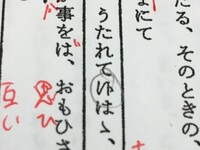 たる、そのときの、
にて
うたれて
事をは、おもひさ
思ひ
互い